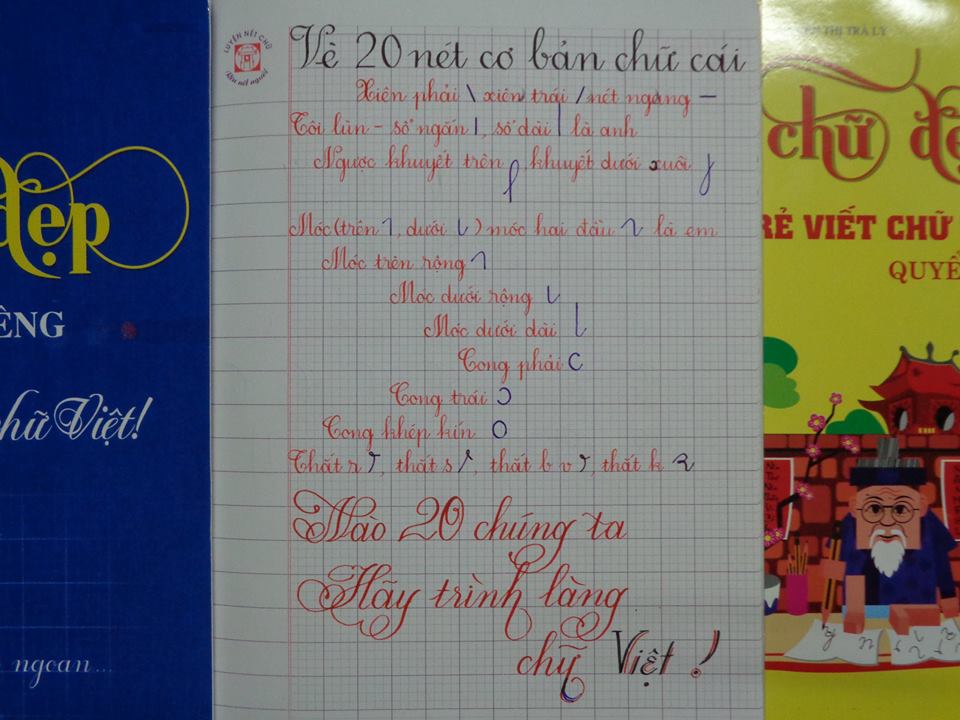 LUYỆN NÉT CHỮ
Rèn nết người
Vè 20 nét cơ bản chữ cái
Xiên phải \ xiên trái / nét ngang –
Tôi lùn – sổ ngắn l, sổ dài l là anh
Ngược khuyết trên, khuyết dưới xuôi
Móc (trên, dưới) móc hai đầu là em
Móc trên rộng
Móc dưới rộng
Móc dưới dài
Cong phải c
Cong trái
Cong khép kín o
Thắt r, thắt s, thắt b v, thắt k
Nào 20 chúng ta
Hãy trình làng
chữ Việt !
đẹp
ÊNG
chữ Việt!
ngoan...
THỊ TRÀ LY
chữ đẹ
RẺ VIẾT CHỮ
QUYỂ